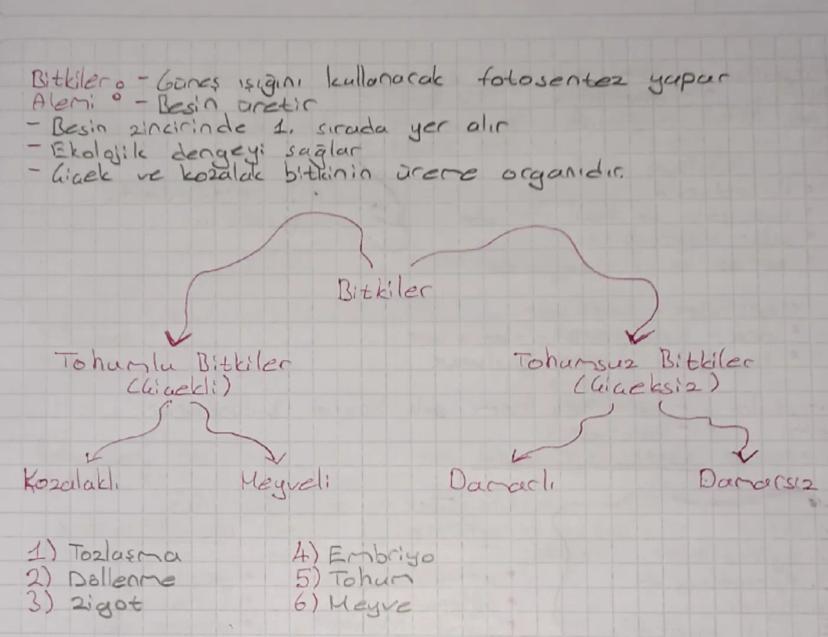 Bitkiler : - Güneş ışığını kullanarak fotosentez yapar
Alemi - Besin üretir
- Besin zincirinde 1. sırada yer alır
- Ekolojik dengeyi sağlar
- Çiçek ve kozalak bitkinin üreme organıdır.
Bitkiler
Tohumlu Bitkiler
(Çiçekli)
Tohumsuz Bitkiler
(Çiçeksiz)
Kozalaklı
Meyveli
Damarlı
Damarsız
1) Tozlaşma
2) Döllenme
3) Zigot
4) Embriyo
5) Tohum
6) Meyve